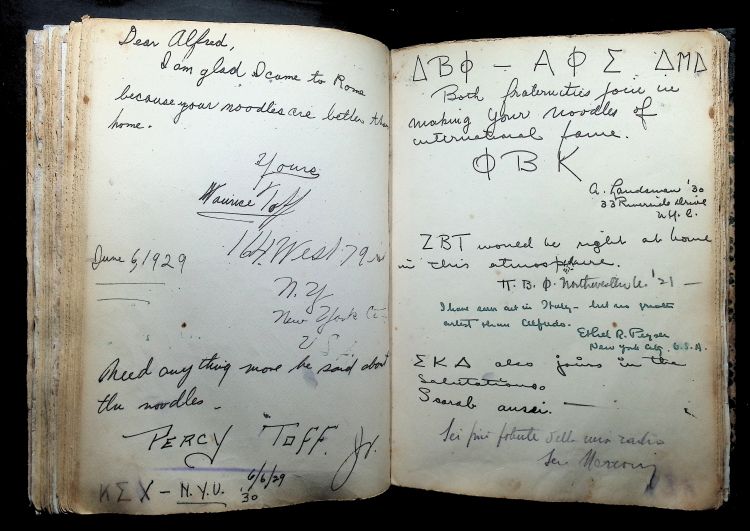 Dear Alfred,
I am glad I came to Rome
because your noodles are better than
home.
Yours
Maurice Toff
June 6, 1929
164 West 79
N.Y
New York
U
Need anything more be said about
the noodles -
PERCY TOFF. Jr.
6/6/29
ΚΣΧ - N.Y.U. '30
ΔΒΦ - ΑΦΣ ΔΜΔ
Both fraternities join in
making your noodles of
international fame.
ΦΒΚ
A. Landsman '30
33 Riverside Drive
N.Y.C.
ZBT would be right at home
in this atmosphere.
Π.Β.Φ. Northwestern U. '21 -
I have seen art in Italy - but no greater
artist than Alfredo.
Ethel R. Peyser
New York City U.S.A.
ΣΚΔ also joins in the
Salutations.
Scarab aussi. -
Sei più potente della mia radio